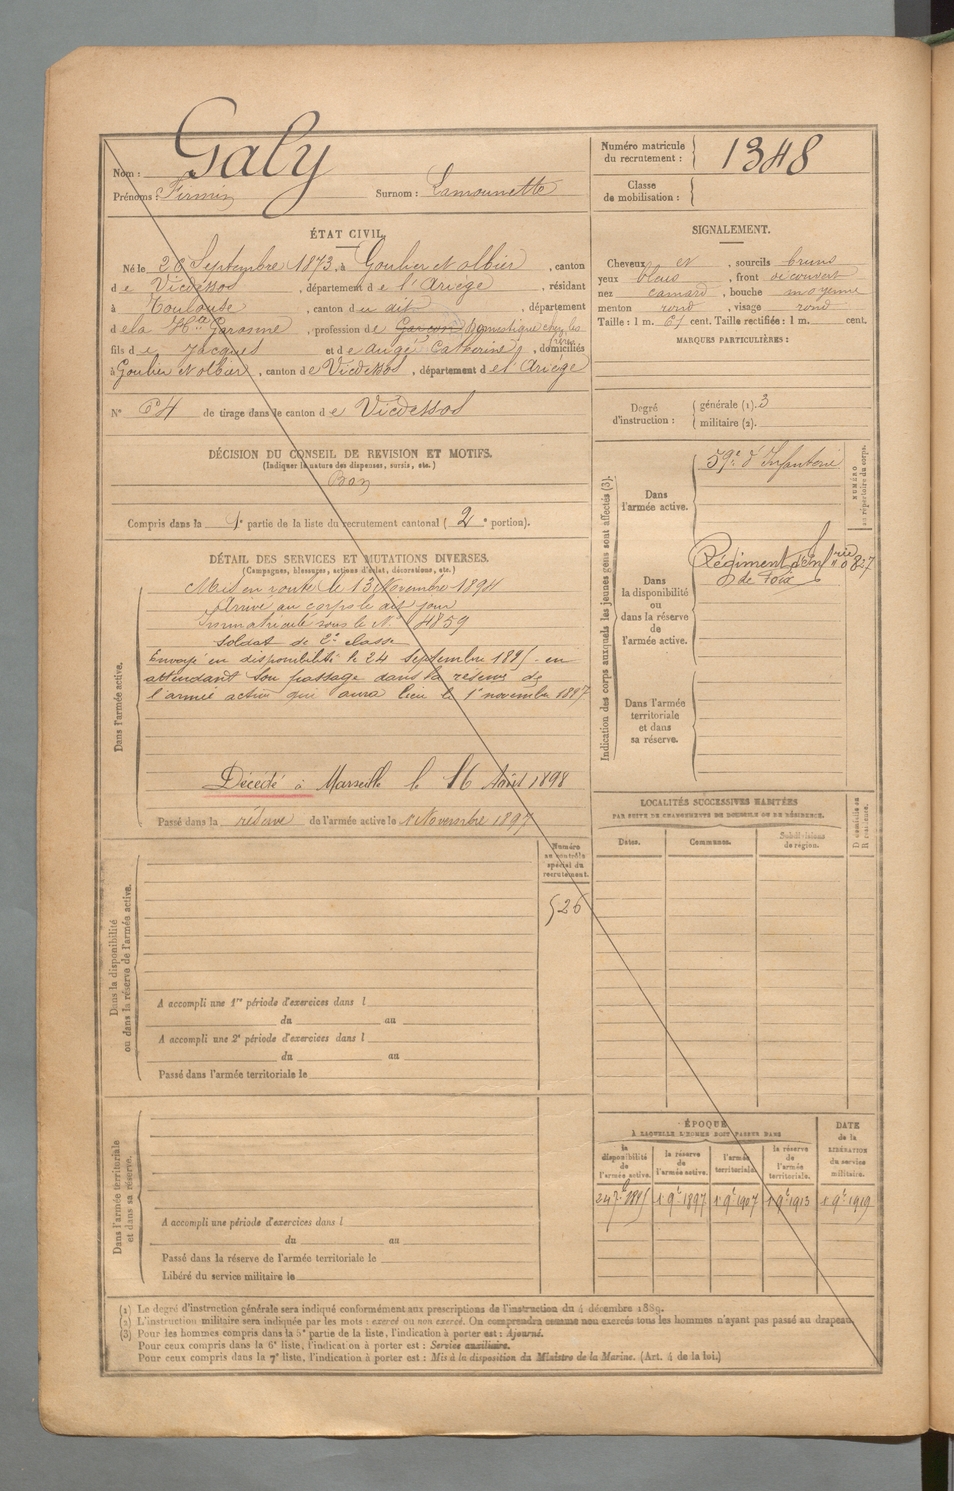 Nom : Galy
Prénoms : Firmin Surnom : Lamounette
Numéro matricule du recrutement : 1348
Classe de mobilisation :
ÉTAT CIVIL.
Né le 20 Septembre 1873, à Goulier et Olbier, canton
de Vicdessos, département de l'Ariège, résidant
à Toulouse, canton du dit, département
de la Hte Garonne, profession de Garçon Domestique chez les
fils de Jacques et de Augé Catherine, domiciliés
à Goulier et Olbier, canton de Vicdessos, département de l'Ariège
N° 64 de tirage dans le canton de Vicdessos
SIGNALEMENT.
Cheveux et, sourcils bruns
yeux bleus, front découvert
nez camard, bouche moyenne
menton rond, visage rond
Taille : 1 m. 61 cent. Taille rectifiée : 1 m. cent.
MARQUES PARTICULIÈRES :
Degré d'instruction : générale (1). 3
militaire (2).
DÉCISION DU CONSEIL DE REVISION ET MOTIFS.
(Indiquer la nature des dispenses, sursis, etc.)
Bon
Compris dans la 1e partie de la liste du recrutement cantonal (2e portion).
DÉTAIL DES SERVICES ET MUTATIONS DIVERSES.
(Campagnes, blessures, actions d'éclat, décorations, etc.)
Dans l'armée active.
Mis en route le 13 Novembre 1894
Arrivé au corps le dit jour
Immatriculé sous le N° 4859
Soldat de 2e classe
Envoyé en disponibilité le 24 septembre 1895 en
attendant son passage dans la réserve de
l'armée active qui aura lieu le 1er novembre 1897
Décédé à Marseille le 16 Août 1898
Passé dans la réserve de l'armée active le 1 Novembre 1897
Indication des corps auxquels les jeunes gens sont affectés (3).
NUMÉRO au répertoire du corps.
Dans l'armée active.
59e d'Infanterie
Dans la disponibilité ou dans la réserve de l'armée active.
Régiment d'Infrie
de Foix
827
Dans l'armée territoriale et dans sa réserve.
LOCALITÉS SUCCESSIVES HABITÉES
PAR SUITE DE CHANGEMENTS DE DOMICILE OU DE RÉSIDENCE.
Dates. Communes. Subdivisions de région. D domicile ou R résidence.
Dans la disponibilité ou dans la réserve de l'armée active.
Numéro au contrôle spécial du recrutement.
526
A accompli une 1re période d'exercices dans l
du au
A accompli une 2e période d'exercices dans l
du au
Passé dans l'armée territoriale le
Dans l'armée territoriale et dans sa réserve.
A accompli une période d'exercices dans l
du au
Passé dans la réserve de l'armée territoriale le
Libéré du service militaire le
ÉPOQUE
À LAQUELLE L'HOMME DOIT PASSER DANS
DATE de la LIBÉRATION du service militaire.
la disponibilité de l'armée active. la réserve de l'armée active. l'armée territoriale. la réserve de l'armée territoriale.
24 7bre 1895 1er 9bre 1897 1er 9bre 1907 1er 9bre 1913 1er 9bre 1919
(1) Le degré d'instruction générale sera indiqué conformément aux prescriptions de l'instruction du 4 décembre 1889.
(2) L'instruction militaire sera indiquée par les mots : exercé ou non exercé. On comprendra comme non exercés tous les hommes n'ayant pas passé au drapeau.
(3) Pour les hommes compris dans la 5e partie de la liste, l'indication à porter est : Ajourné.
Pour ceux compris dans la 6e liste, l'indication à porter est : Service auxiliaire.
Pour ceux compris dans la 7e liste, l'indication à porter est : Mis à la disposition du Ministre de la Marine. (Art. 4 de la loi.)